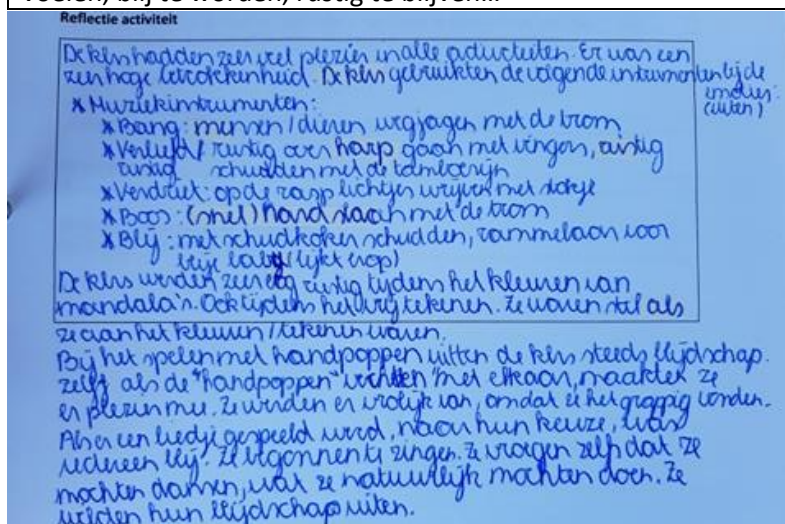 voelen, blij te worden, rustig te blijven...
Reflectie activiteit
De klrs hadden zeer veel plezier in alle activiteiten. Er was een
zeer hoge betrokkenheid. De klrs gebruikten de volgende instrumenten bij de
emoties:
(uiten)
* Muziekinstrumenten:
* Bang: mensen / dieren wegjagen met de trom
* Verliefd / rustig over harp gaan met vingers, rustig
rustig schudden met de tamboerijn
* Verdriet: op de rasp lichtjes wrijven met stokje
* Boos: (snel) hard slaan met de trom
* Blij: met schudkoker schudden, rammelaar voor
blije baby (lijkt erop)
De klrs werden zeer rustig tijdens het kleuren van
mandala's. Ook tijdens het vrij tekenen. Ze waren stil als
ze aan het kleuren / tekenen waren.
Bij het spelen met handpoppen uitten de klrs steeds blijdschap.
Zelfs als de "handpoppen" vochten met elkaar, maakten ze
er plezier mee. Ze werden er vrolijk van, omdat ze het grappig vonden.
Als er een liedje gespeeld werd, naar hun keuze, was
iedereen blij. Ze begonnen te zingen. Ze vroegen zelf dat ze
mochten dansen, wat ze natuurlijk mochten doen. Ze
wilden hun blijdschap uiten.